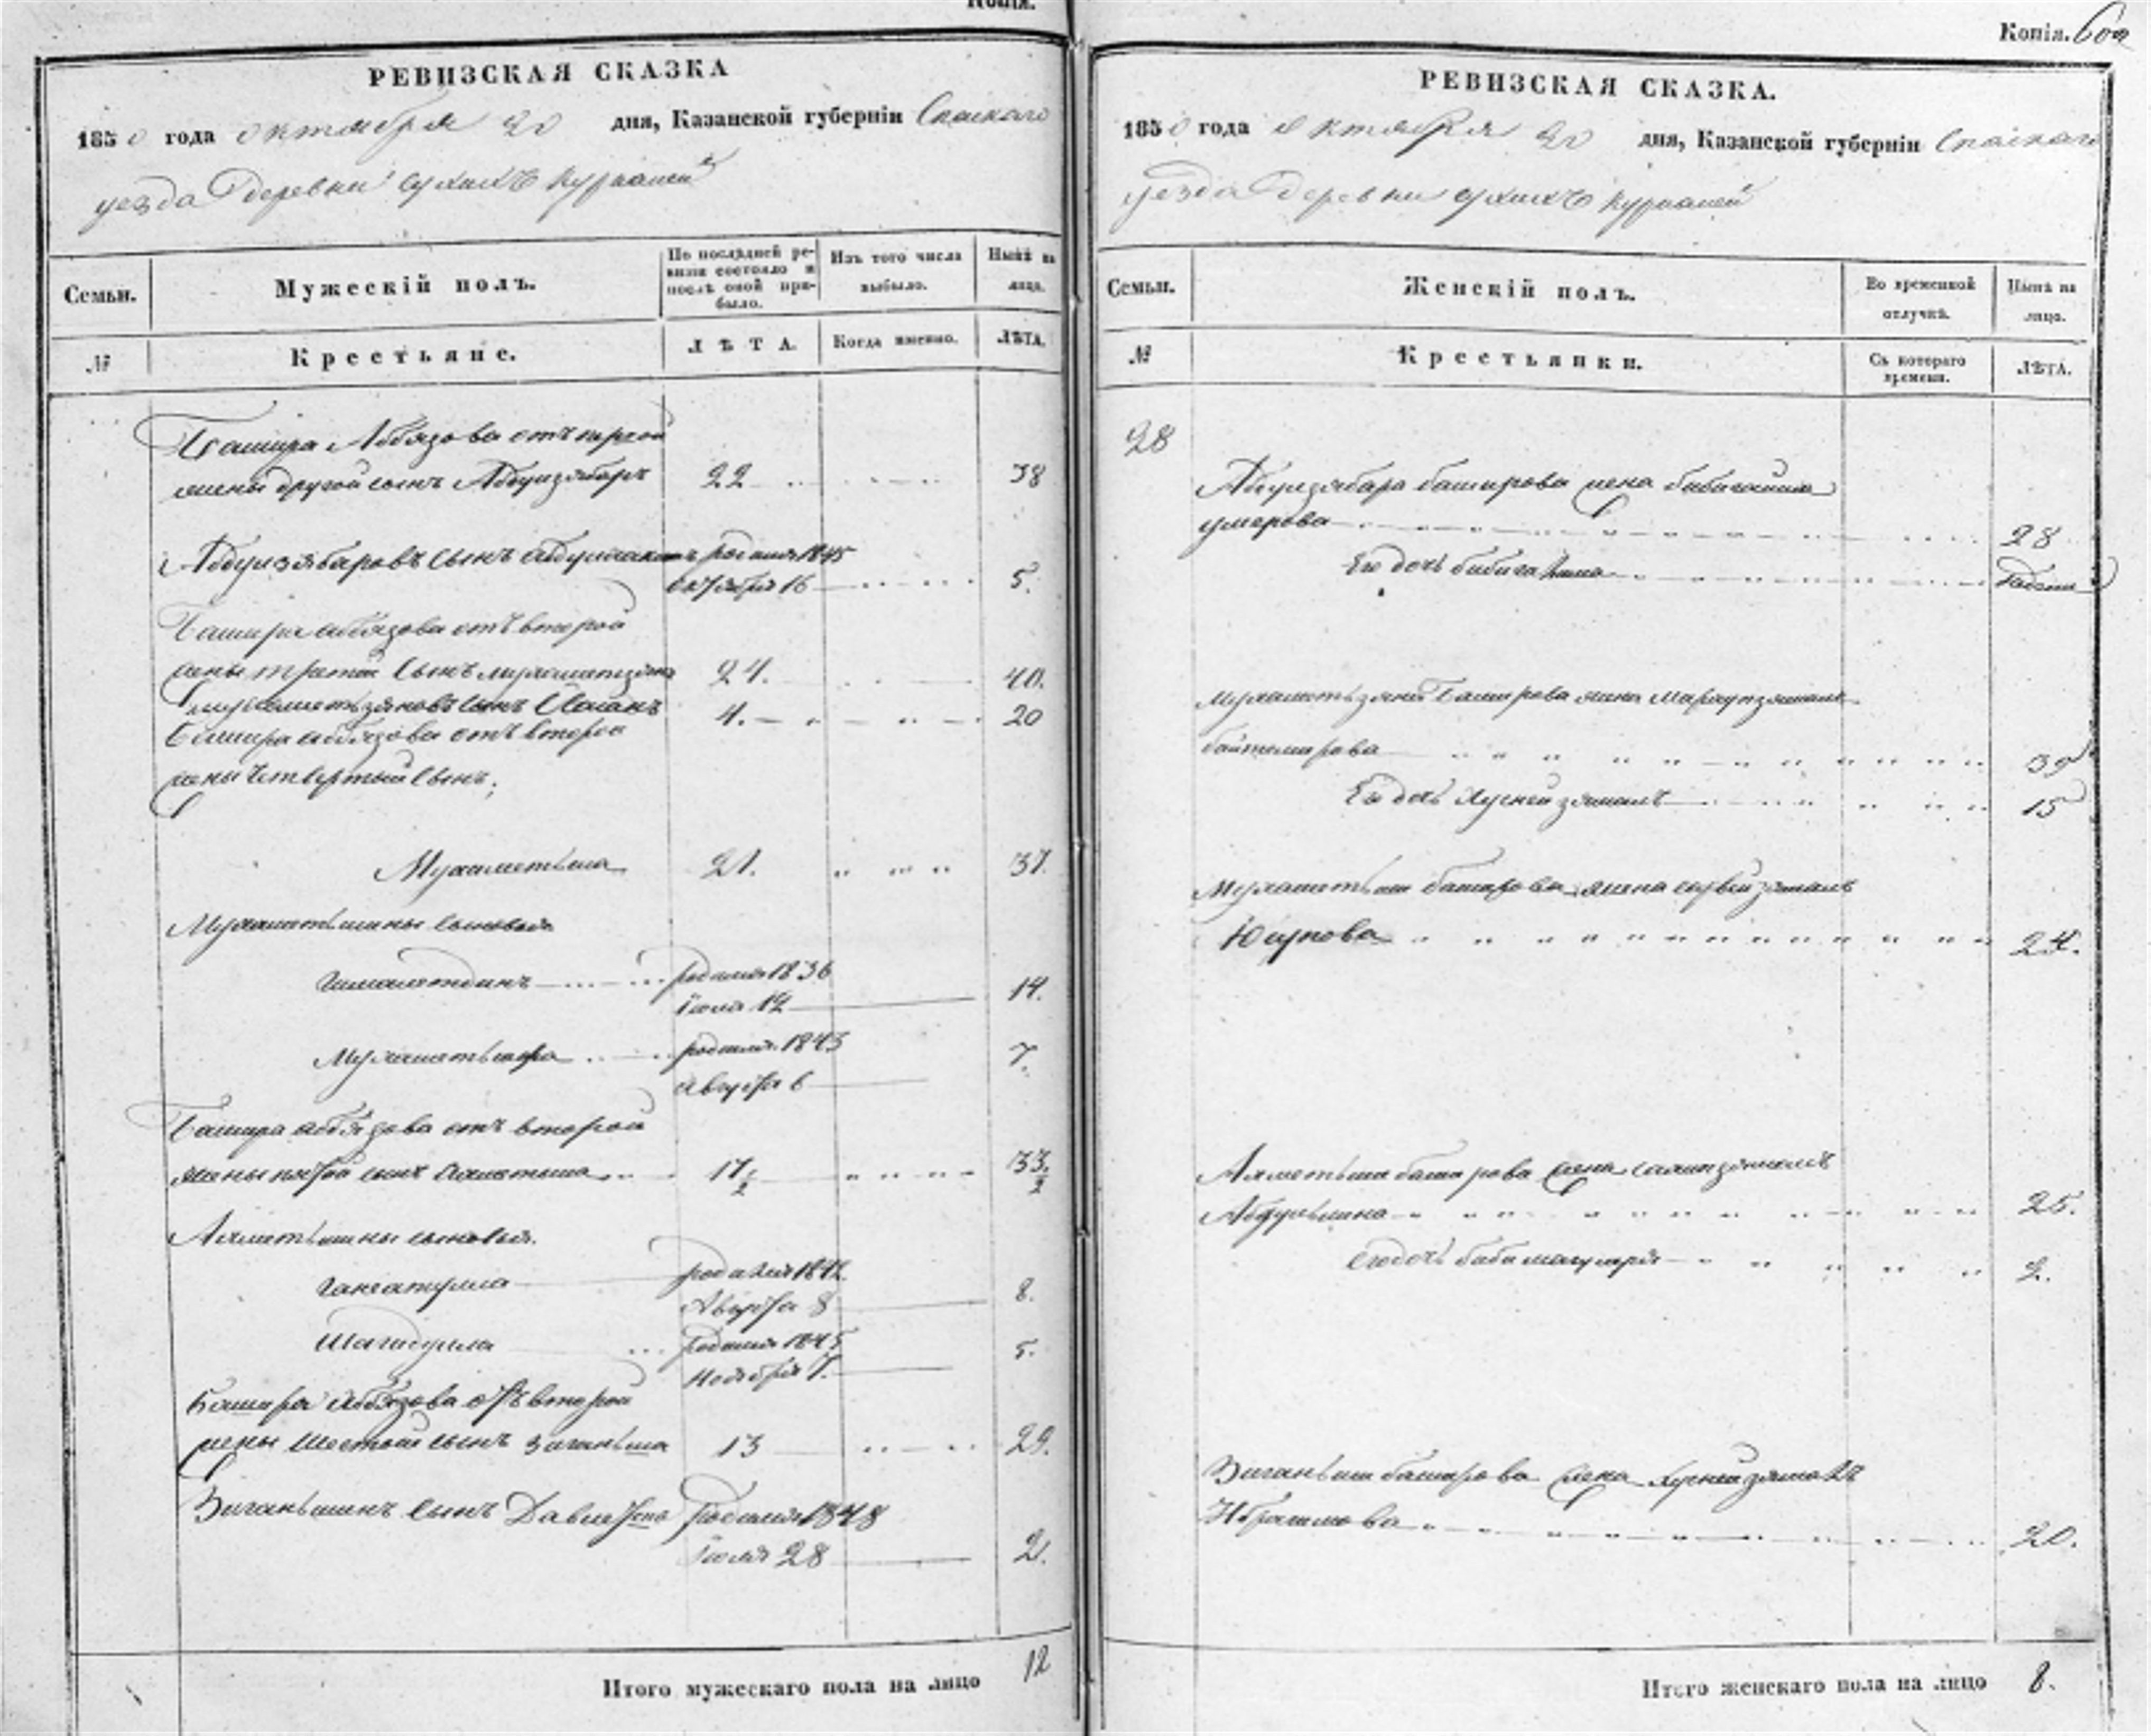 Копія.
РЕВИЗСКАЯ СКАЗКА
1850 года октября 20 дня, Казанской губерніи Спаскаго
уезда деревни сухихъ Курналей
Семьи.
Мужескій полъ.
По послѣдней ре-
визіи состояло и
послѣ оной при-
было.
Изъ того числа
выбыло.
Нынѣ на
лицо.
№
Крестьяне.
ЛѢТА.
Когда именно.
ЛѢТА.
Башира Аббязова отъ первой
жены другой сынъ Абдулзябаръ 22 38
Абдулзябаровъ сынъ родился 1845
октября 16 5.
Башира аббязова отъ второй
жены третій сынъ мухаметзянъ 24. 40.
мухаметьзяновъ сынъ 4. 20
Башира аббязова отъ второй
жены четвертый сынъ;
Мухаметьша 21. 37.
Мухаметьшины сыновья
родился 1836
Іюля 12 14.
Мухаметьшера родился 1843
августа 6 7.
Башира аббязова отъ второй
жены пятой сынъ Ахметьша 17 1/2 33 1/2
Ахметьшины сыновья.
родился 1842
Августа 8 8.
Шагидулла родился 1845
Ноября 7. 5.
Башира аббязова отъ второй
жены шестой сынъ Зиганьша 13 29.
Зиганьшинъ сынъ родился 1848
Іюля 28 2.
Итого мужескаго пола на лицо 12
Копія. 60
РЕВИЗСКАЯ СКАЗКА.
1850 года октября 20 дня, Казанской губерніи Спаскаго
уезда деревни сухихъ Курналей
Семьи.
Женскій полъ.
Во временной
отлучкѣ.
Нынѣ на
лицо.
№
Крестьянки.
Съ котораго
времени.
ЛѢТА.
28
Абдулзябара баширова жена
умерова 28
Ее дочь
Мухаметьзяна Баширова жена
байтемирова 39
Ее дочь Хуснизямалъ 15
Мухаметьши баширова жена
Юсупова 24.
Ахметьши баширова жена
25.
Его дочь 2.
Зиганьши баширова жена Хуснизямалъ
Ибрагимова 20.
Итого женскаго пола на лицо 8.